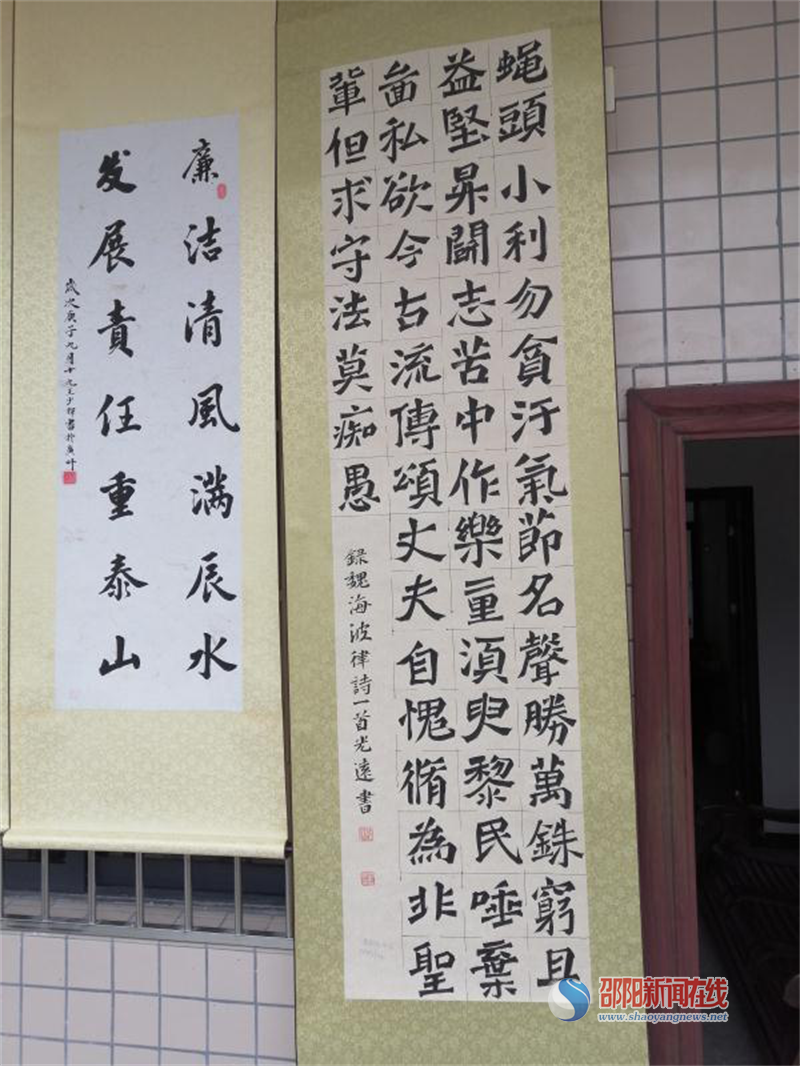 蝇頭小利勿貪汙氣節名聲勝萬銖窮且
益堅昇闘志苦中作樂重須臾黎民唾棄
啚私欲今古流傳頌丈夫自愧脩為非聖
輩但求守法莫痴愚
錄魏海波律詩一首光遠書
廉洁清風满辰水
发展責任重泰山
歲次庚子九月十九王少書於
邵阳新闻在线
www.shaoyangnews.net